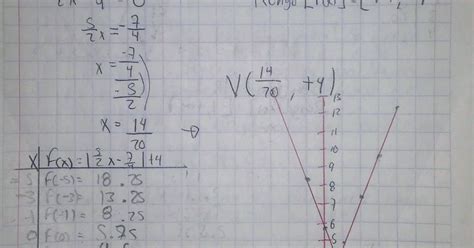 5/2 x = -7/4
x = -7/4 / -5/2
x = 14/20
V(14/20, +4)
X | F(x) = |5/2 x - 7/4| + 4
-5 | F(-5) = 18.25
-3 | F(-3) = 13.25
-1 | F(-1) = 8.25
0 | F(0) = 5.75
13
12
11
10
9
8
7
6
5